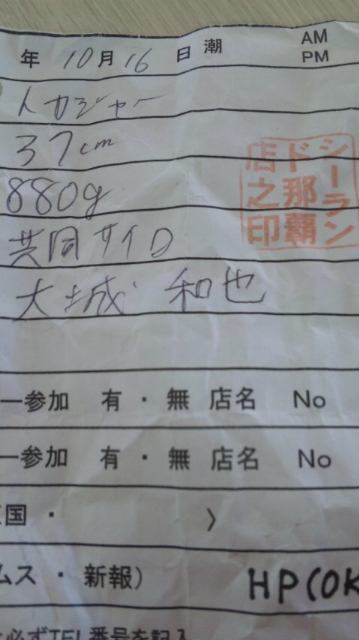 年 10月 16日 潮 AM PM
トカジャー
37cm
880g
共同サイロ
大城 和也
シーランド那覇店之印
ー参加 有・無 店名 No
ー参加 有・無 店名 No
国・ 〉
ムス・新報) HP(OK
必ずTEL番号を記入